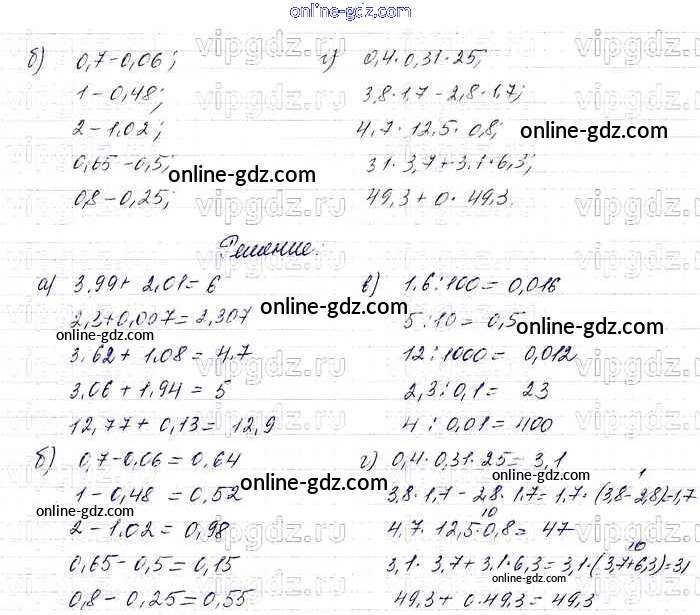 online-gdz.com
б) 0,7-0,06; г) 0,4·0,31·25;
1-0,48; 3,8·1,7-2,8·1,7;
2-1,02; 4,7·12,5·0,8;
0,65-0,5; 3,1·3,7+3,1·6,3;
0,8-0,25; 49,3+0·49,3.
Решение:
а) 3,99+2,01=6 в) 1,6:100=0,016
2,3+0,007=2,307 5:10=0,5
3,62+1,08=4,7 12:1000=0,012
3,06+1,94=5 2,3:0,1=23
12,77+0,13=12,9 4:0,01=400
б) 0,7-0,06=0,64 г) 0,4·0,31·25=3,1
1
1-0,48=0,52 3,8·1,7-2,8·1,7=1,7·(3,8-2,8)=1,7
10
2-1,02=0,98 4,7·12,5·0,8=47
10
0,65-0,5=0,15 3,1·3,7+3,1·6,3=3,1·(3,7+6,3)=3,
0,8-0,25=0,55 49,3+0·49,3=49,3
online-gdz.com
online-gdz.com
online-gdz.com
online-gdz.com
online-gdz.com
online-gdz.com
online-gdz.com
online-gdz.com
online-gdz.com
vipgdz.ru
vipgdz.ru
vipgdz.ru